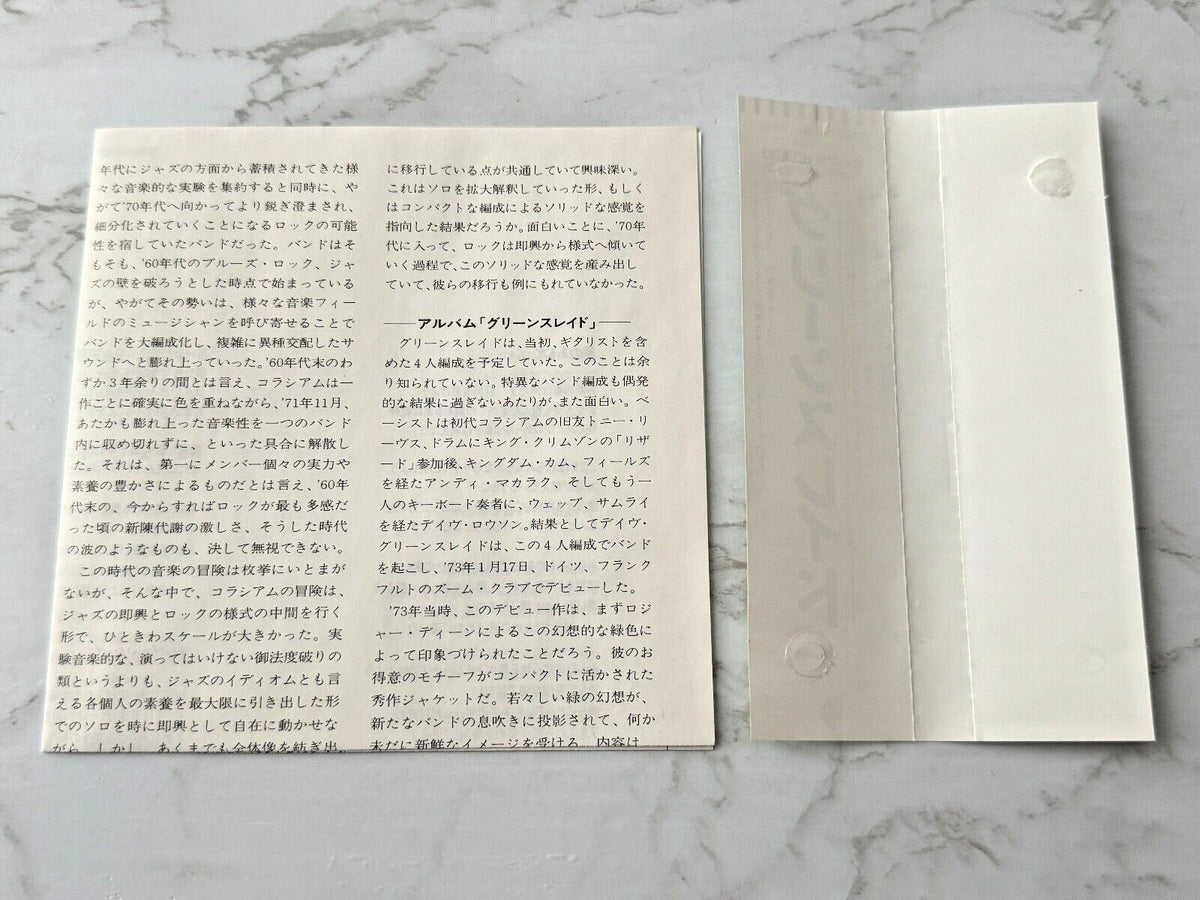 年代にジャズの方面から蓄積されてきた様
々な音楽的な実験を集約すると同時に、や
がて'70年代へ向かってより鋭ぎ澄まされ、
細分化されていくことになるロックの可能
性を宿していたバンドだった。バンドはそ
もそも、'60年代のブルーズ・ロック、ジャ
ズの壁を破ろうとした時点で始まっている
が、やがてその勢いは、様々な音楽フィー
ルドのミュージシャンを呼び寄せることで
バンドを大編成化し、複雑に異種交配したサ
ウンドへと膨れ上っていった。'60年代末のわ
ずか3年余りの間とは言え、コラシアムは一
作ごとに確実に色を重ねながら、'71年11月、
あたかも膨れ上った音楽性を一つのバンド
内に収め切れずに、といった具合に解散し
た。それは、第一にメンバー個々の実力や
素養の豊かさによるものだとは言え、'60年
代末の、今からすればロックが最も多感だ
った頃の新陳代謝の激しさ、そうした時代
の波のようなものも、決して無視できない。
この時代の音楽の冒険は枚挙にいとまが
ないが、そんな中で、コラシアムの冒険は、
ジャズの即興とロックの様式の中間を行く
形で、ひときわスケールが大きかった。実
験音楽的な、演ってはいけない御法度破りの
類というよりも、ジャズのイディオムとも言
える各個人の素養を最大限に引き出した形
でのソロを時に即興として自在に動かせな
がら、しかし、あくまでも全体像を紡ぎ出
に移行している点が共通していて興味深い。
これはソロを拡大解釈していった形、もしく
はコンパクトな編成によるソリッドな感覚を
指向した結果だろうか。面白いことに、'70年
代に入って、ロックは即興から様式へ傾いて
いく過程で、このソリッドな感覚を産み出し
ていて、彼らの移行も例にもれていなかった。
――アルバム「グリーンスレイド」――
グリーンスレイドは、当初、ギタリストを含
めた4人編成を予定していた。このことは余
り知られていない。特異なバンド編成も偶発
的な結果に過ぎないあたりが、また面白い。ベ
ーシストは初代コラシアムの旧友トニー・リ
ーヴス、ドラムにキング・クリムゾンの「リザ
ード」参加後、キングダム・カム、フィールズ
を経たアンディ・マカラク、そしてもう一
人のキーボード奏者に、ウェッブ、サムライ
を経たデイヴ・ロウソン。結果としてデイヴ・
グリーンスレイドは、この4人編成でバンド
を起こし、'73年1月17日、ドイツ、フランク
フルトのズーム・クラブでデビューした。
'73年当時、このデビュー作は、まずロジ
ャー・ディーンによるこの幻想的な緑色に
よって印象づけられたことだろう。彼のお
得意のモチーフがコンパクトに活かされた
秀作ジャケットだ。若々しい緑の幻想が、
新たなバンドの息吹きに投影されて、何か
未だに新鮮なイメージを受ける。内容は